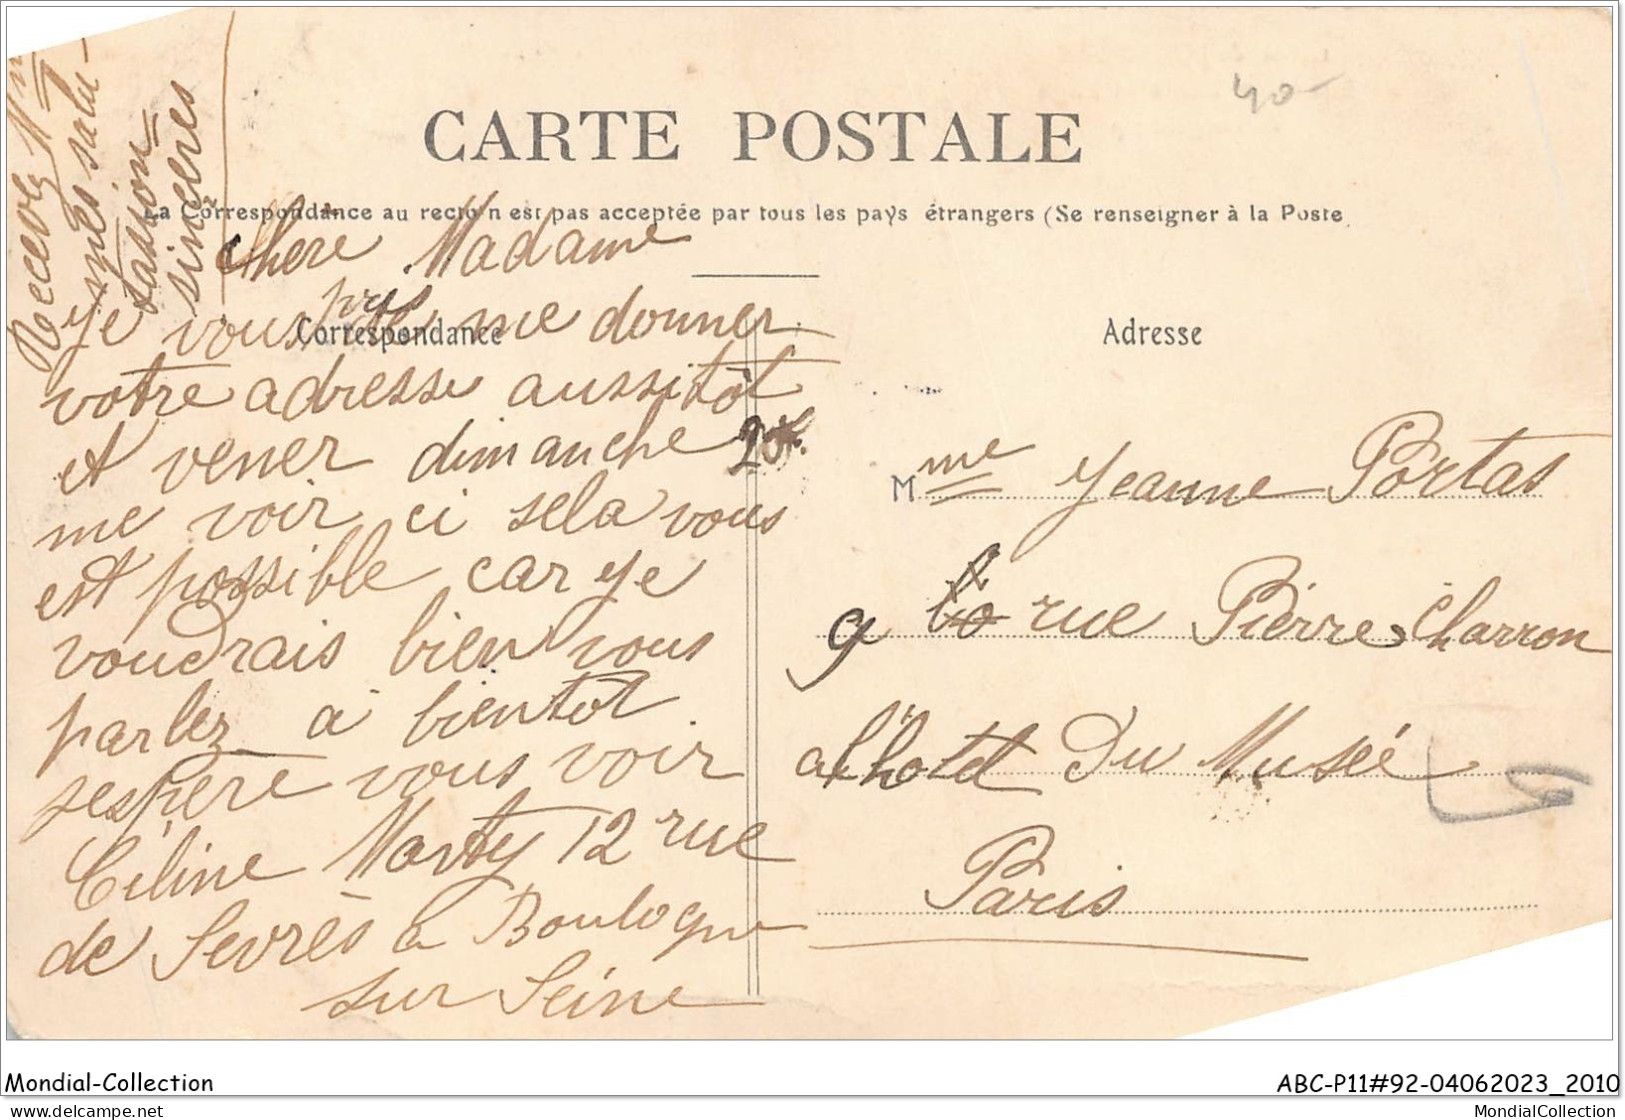 40-
CARTE POSTALE
La Correspondance au recto n'est pas acceptée par tous les pays étrangers (Se renseigner à la Poste
Correspondance
Adresse
Recevez Mme
mes salu-
tasion
sincères
chere Madame
Je vous pris de me donner
votre adresse aussitôt
et vener dimanche
me voir ci sela vous
est possible car je
voudrais bien vous
parlez a bientot
jespère vous voir
Céline Marty 12 rue
de Sevrès a Boulogne
sur Seine
Mme Jeanne Portas
9 rue Pierre Charron
a l'hotel Du Musée
Paris
Mondial-Collection
ABC-P11#92-04062023_2010
www.delcampe.net
MondialCollection